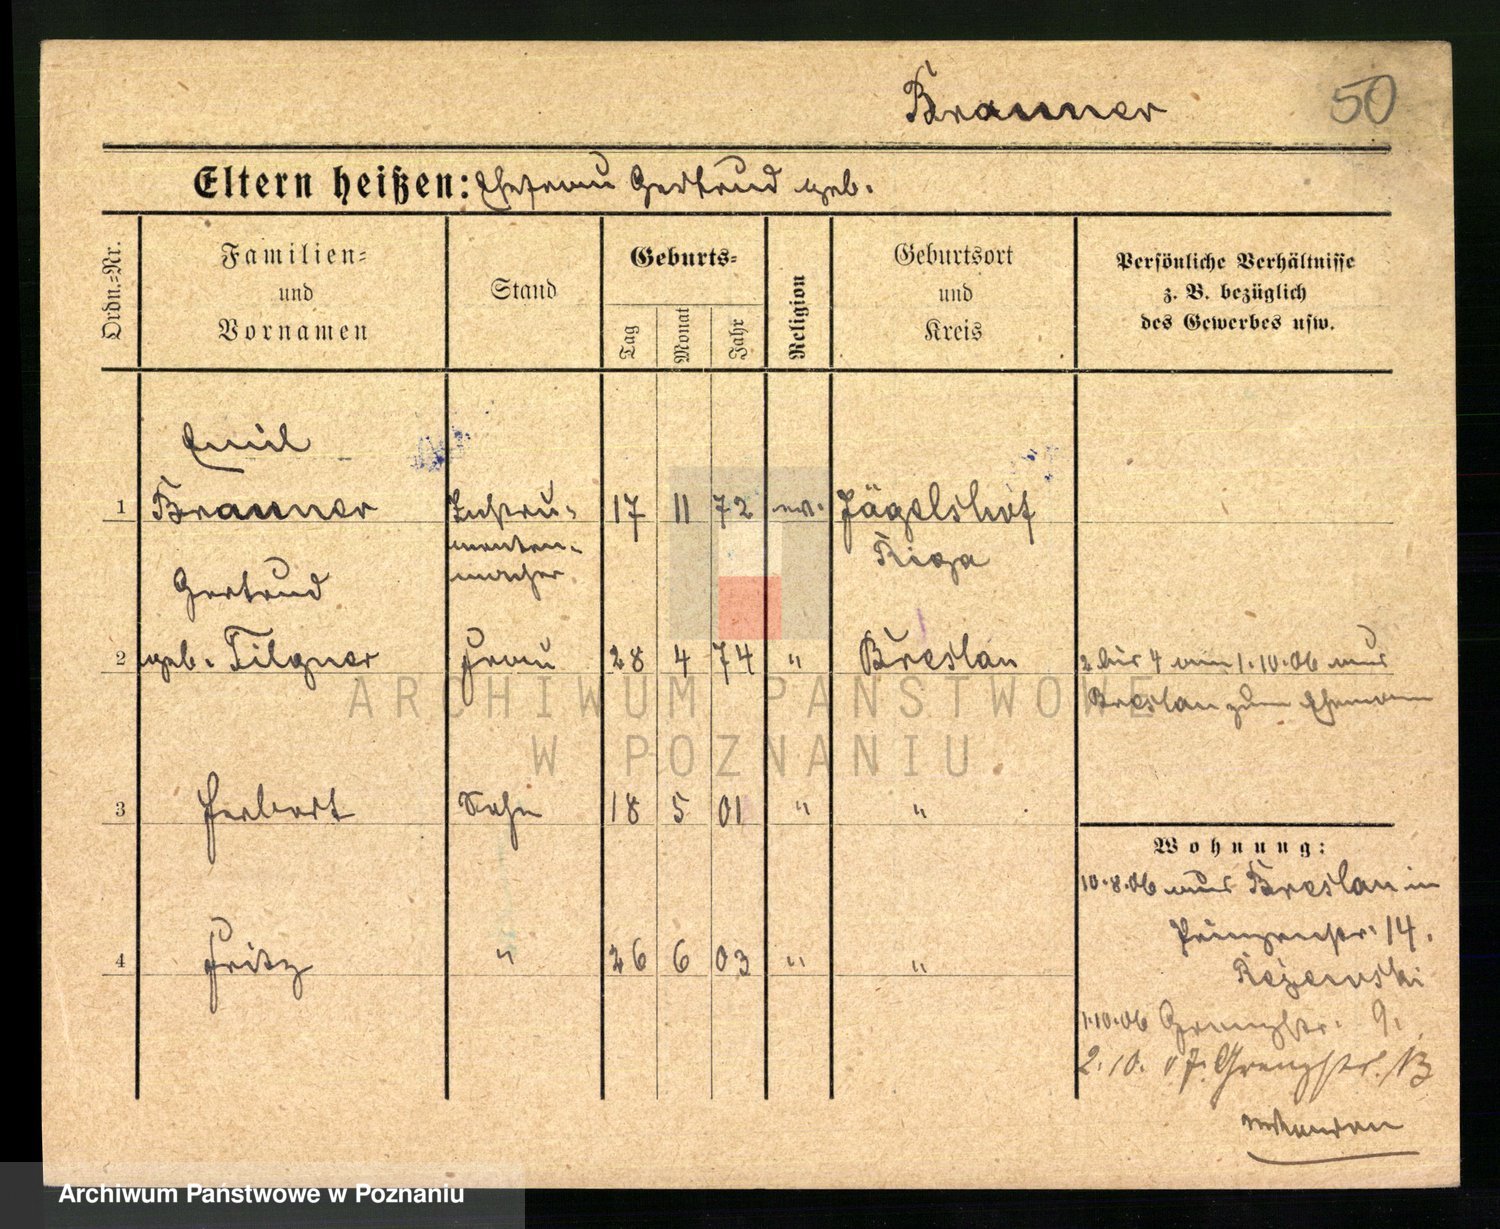 Brauner 50
Eltern heißen: Ehefrau Gertrud geb.
Ordn.-Nr.
Familien-
und
Vornamen
Stand
Geburts-
Tag
Monat
Jahr
Religion
Geburtsort
und
Kreis
Persönliche Verhältnisse
z. B. bezüglich
des Gewerbes usw.
Emil
1 Brauner Instru- 17 11 72 ev. Jägelshof
menten- Riga
macher
Gertrud
2 geb. Tilgner Frau 28 4 74 " Breslau 2 bis 4 am 1.10.06 aus
Breslau zum Ehemann
ARCHIWUM PAŃSTWOWE
W POZNANIU
3 Herbert Sohn 18 5 01 " "
Wohnung:
10.8.06 aus Breslau in
Prinzenstr. 14.
4 Fritz " 26 6 03 " "
1.10.06 Grenzstr. 9.
2.10. 07. Grenzstr.
Archiwum Państwowe w Poznaniu